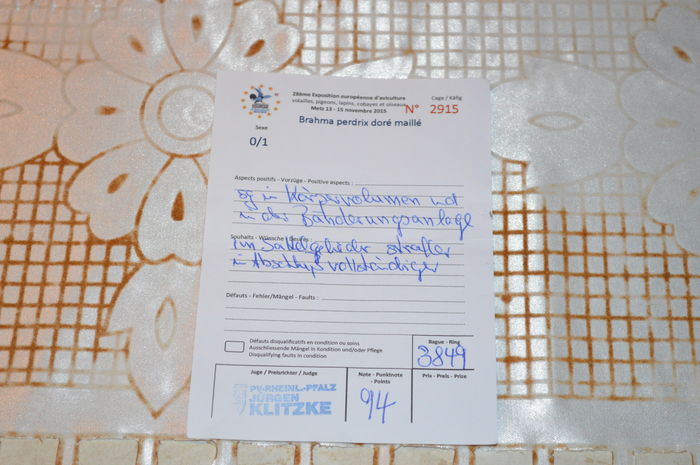 28ème Exposition européenne d'aviculture
volailles, pigeons, lapins, cobayes et oiseaux
Metz 13 - 15 novembre 2015
Cage / Käfig
N° 2915
Brahma perdrix doré maillé
Sexe
0/1
Aspects positifs - Vorzüge - Positive aspects :
sg in Körpervolumen und
in der Bänderungsanlage
Souhaits - Wünsche - Desires :
im Sattelgefieder straffer
im Abschluß vollständiger
Défauts - Fehler/Mängel - Faults :
Défauts disqualificatifs en condition ou soins
Ausschliessende Mängel in Kondition und/oder Pflege
Disqualifying faults in condition
Bague - Ring
3849
Juge / Preisrichter / Judge
PV-RHEINL.-PFALZ
JÜRGEN
KLITZKE
Note - Punktnote
- Points
94
Prix - Preis - Prize